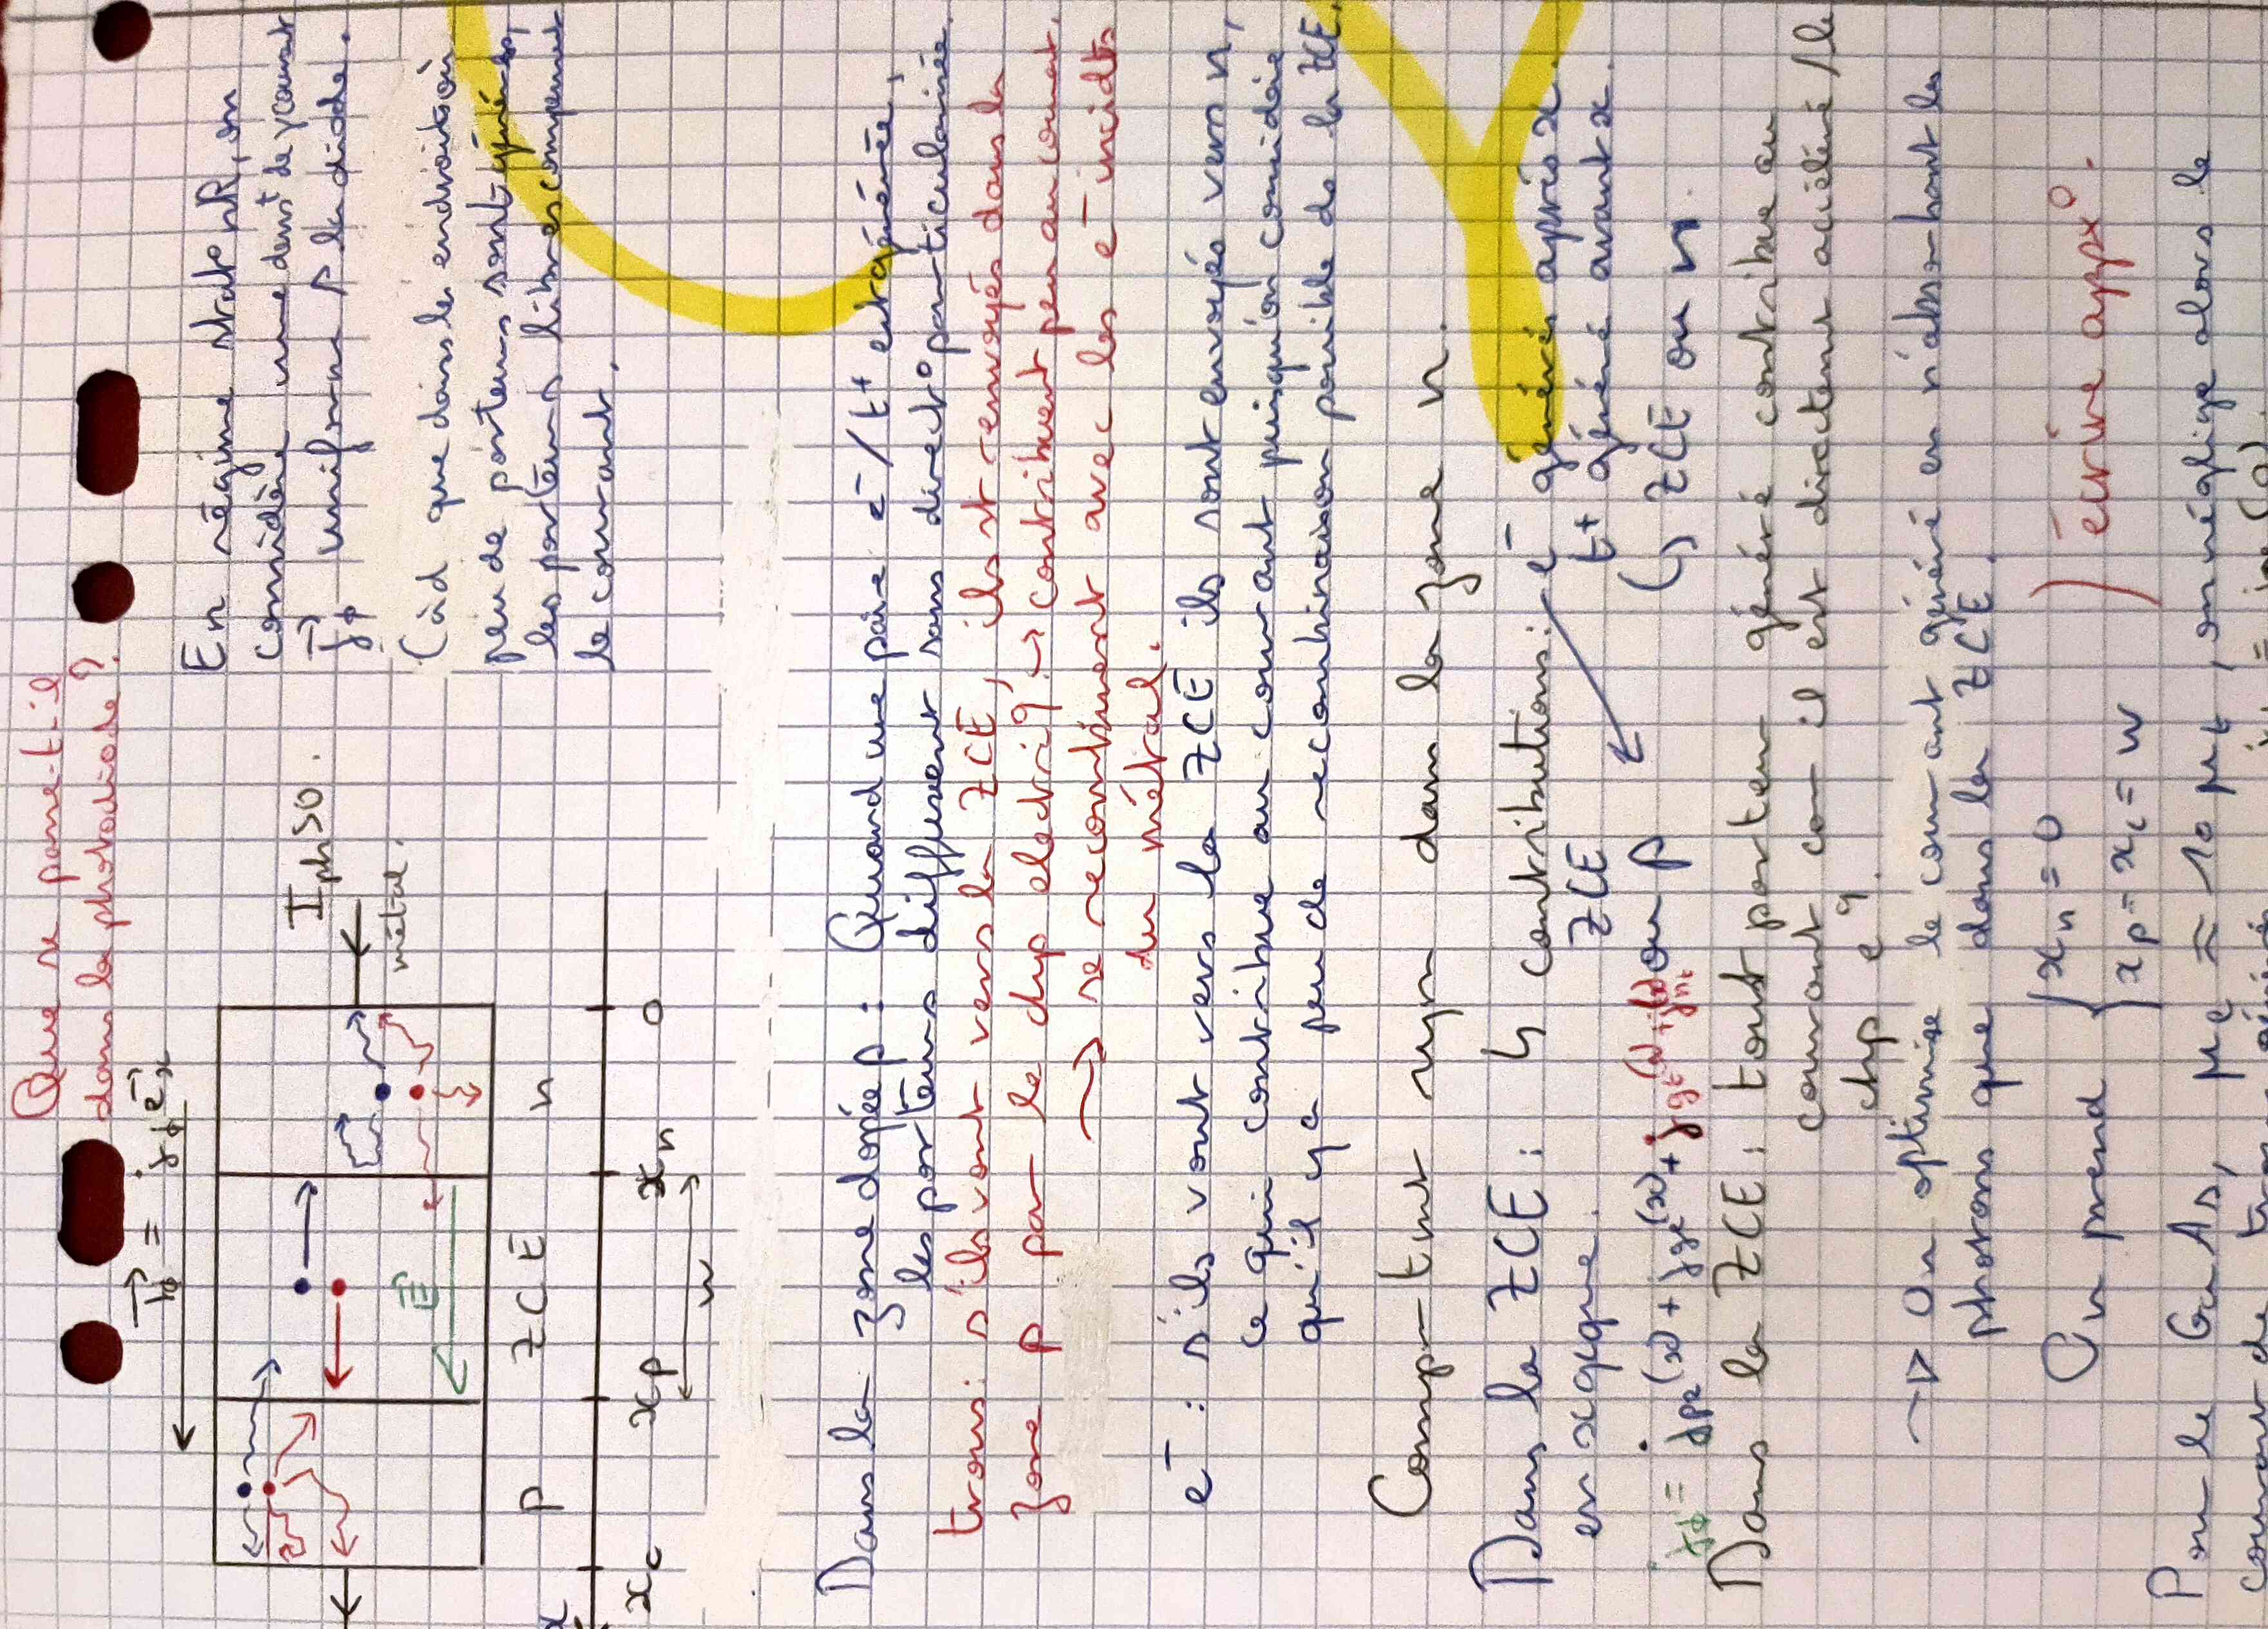 Que se passe-t-il
dans la photodiode ?
j⃗ϕ = jϕ e⃗x
I ph so
métal.
E⃗
p ZCE n
x xc xp xn 0
w
En régime stat° nR, on
considère une densᵗ de courant
j⃗ϕ uniforme ds la diode.
(càd que dans les endroits où
peu de porteurs sont générés,
les porteurs libres compensent
le courant.
Dans la zone dopée p : Quand une paire e⁻/t⁺ est générée,
les porteurs diffusent sans direct° particularisée.
trous : s'ils vont vers la ZCE, ils st renvoyés dans la
zone p par le chp électriq → contribuent peu au courant.
→ se recombinent avec les e⁻ incidts
du métal.
e⁻ : s'ils vont vers la ZCE ils sont envoyés vers n,
ce qui contribue au courant puisqu'on considère
qu'il y a peu de recombinaison possible ds la ZCE.
Comp-tmt sym dans la zone n.
Dans la ZCE : 4 contributions : e⁻ générés après x.
en x qque. ZCE t⁺ généré avant x.
ou p ↳ ZCE ou n
jϕ = jpe(x) + jge(x) + jgt(x) + jnt(x)
Dans la ZCE : tout porteur généré contribue au
courant car il est directement accéléré /le
chp eq.
→ On optimise le courant généré en n'absorbant les
photons que dans la ZCE.
On prend { xn = 0
xp = xc = w ) écrire appx°.
Pour le GaAs, μe ≈ 10 μt, on néglige alors le
courant de trous généré